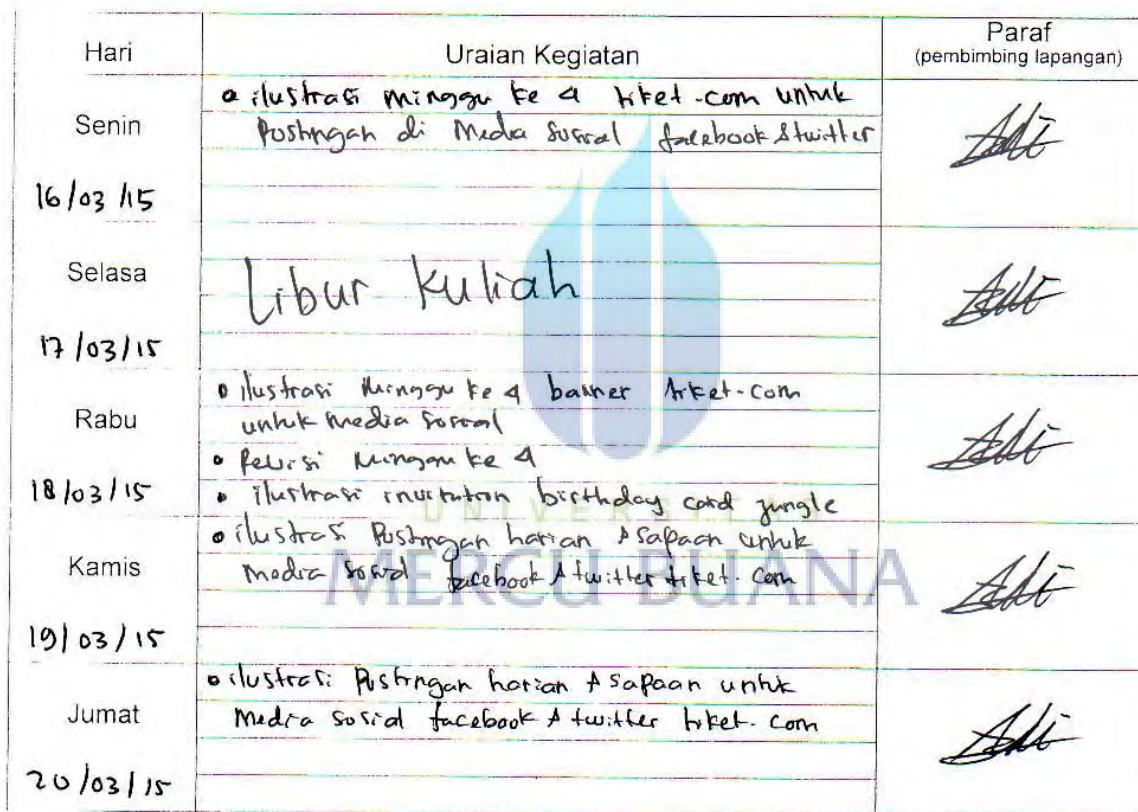 Hari
Uraian Kegiatan
Paraf
(pembimbing lapangan)
Senin
16/03/15
• ilustrasi minggu ke 4 tiket.com untuk
Postingan di Media Sosial facebook & twitter
Selasa
17/03/15
Libur Kuliah
Rabu
18/03/15
• ilustrasi Minggu ke 4 banner tiket.com
untuk media sosial
• Revisi Minggu ke 4
• ilustrasi invitation birthday card jungle
Kamis
19/03/15
• ilustrasi Postingan harian & sapaan untuk
media sosial facebook & twitter tiket.com
Jumat
20/03/15
• ilustrasi Postingan harian & sapaan untuk
Media sosial facebook & twitter tiket.com
UNIVERSITAS
MERCU BUANA